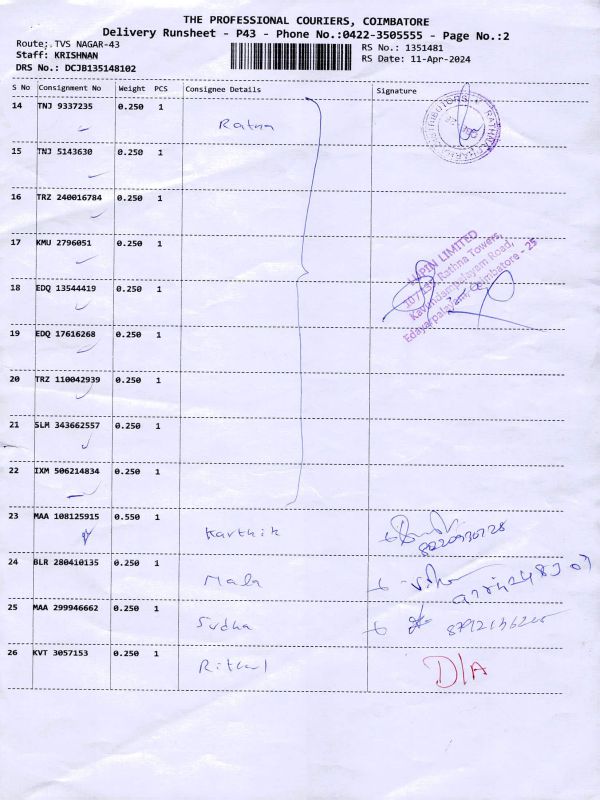 THE PROFESSIONAL COURIERS, COIMBATORE
Delivery Runsheet - P43 - Phone No.:0422-3505555 - Page No.:2
Route: TVS NAGAR-43
RS No.: 1351481
Staff: KRISHNAN
RS Date: 11-Apr-2024
DRS No.: DCJB135148102
S No Consignment No Weight PCS Consignee Details Signature
14 TNJ 9337235 0.250 1
Ratna
15 TNJ 5143630 0.250 1
16 TRZ 240016784 0.250 1
17 KMU 2796051 0.250 1
LUPIN LIMITED
Rathna Towers,
Kavundampalayam Road,
Edayarpalayam, Coimbatore - 25
18 EDQ 13544419 0.250 1
19 EDQ 17616268 0.250 1
20 TRZ 110042939 0.250 1
21 SLM 343662557 0.250 1
22 IXM 506214834 0.250 1
23 MAA 108125915 0.550 1
Karthik
24 BLR 280410135 0.250 1
Mala
25 MAA 299946662 0.250 1
Sudha
26 KVT 3057153 0.250 1
D/A